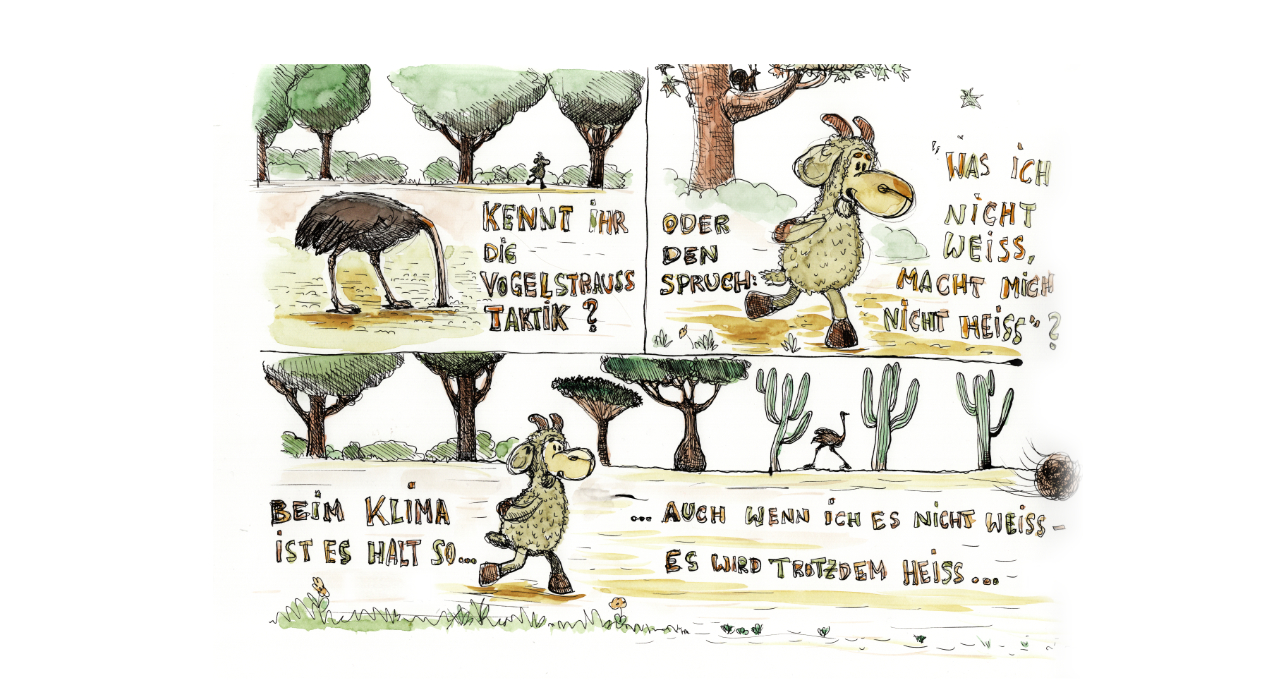 KENNT IHR
DIE
VOGELSTRAUSS
TAKTIK ?
ODER
DEN
SPRUCH:
"WAS ICH
NICHT
WEISS,
MACHT MICH
NICHT HEISS"?
BEIM KLIMA
IST ES HALT SO...
... AUCH WENN ICH ES NICHT WEISS –
ES WIRD TROTZDEM HEISS...